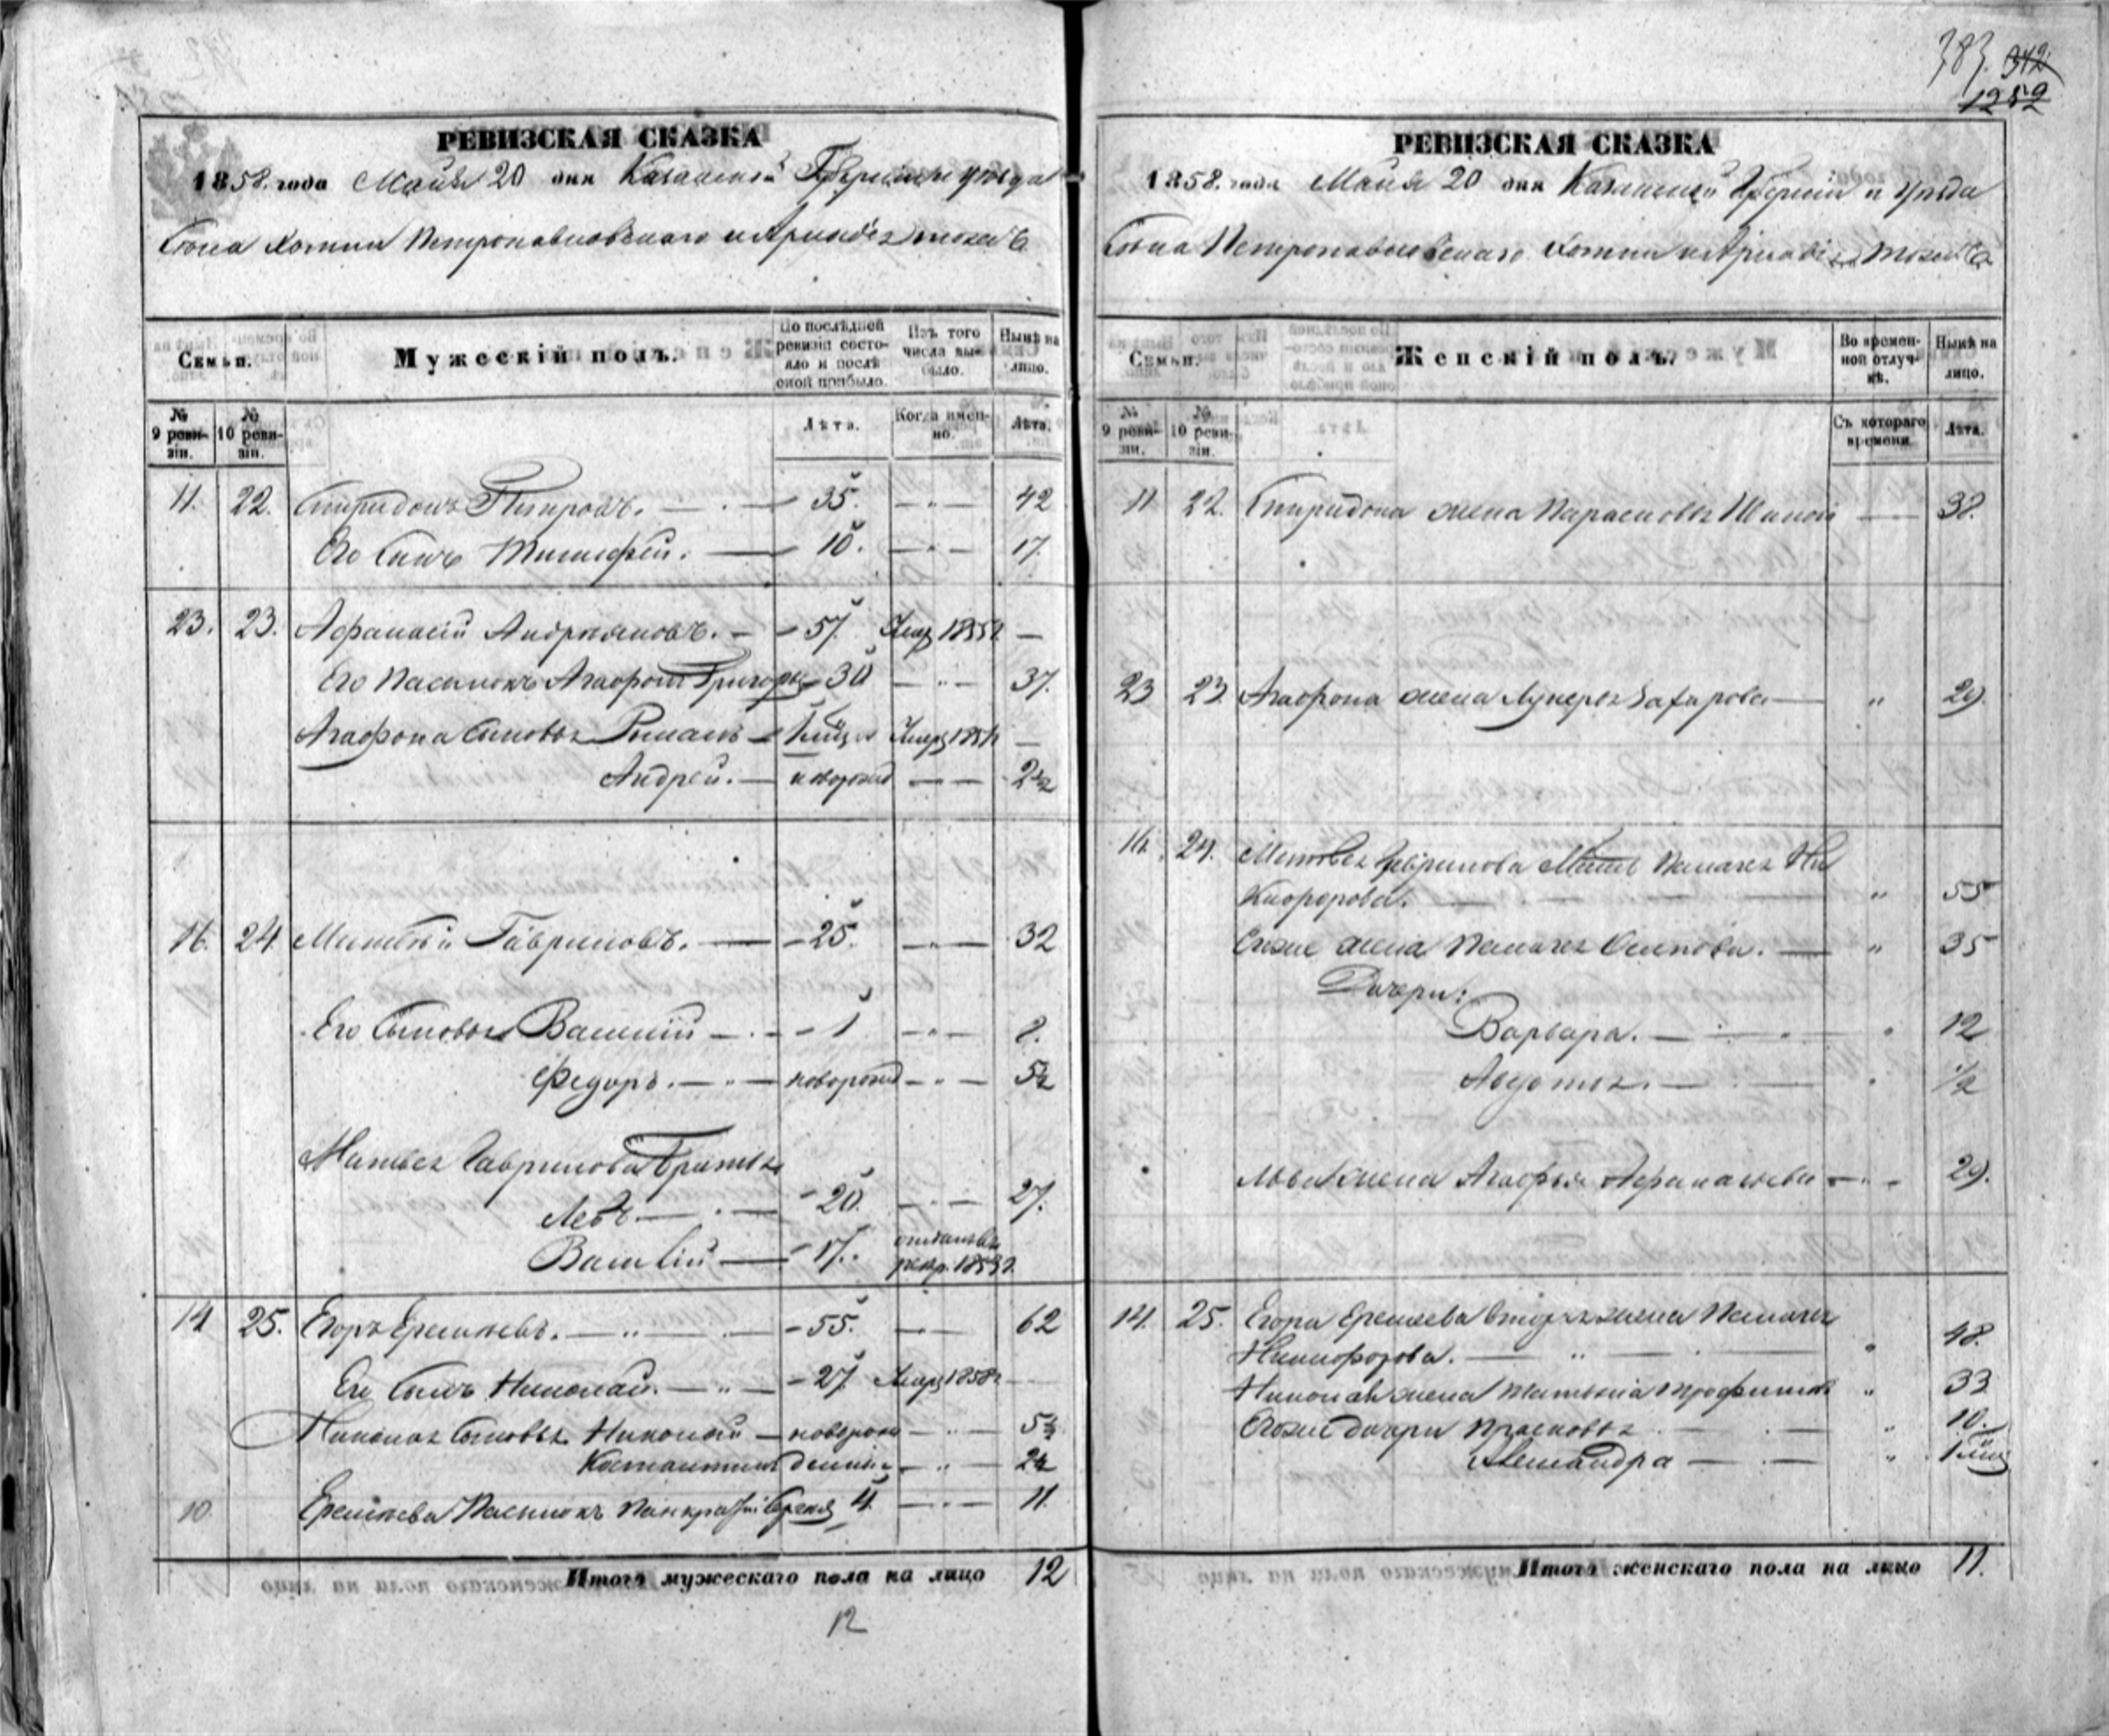 383. 342
1252
РЕВИЗСКАЯ СКАЗКА
1858. года Майя 20 дня Казанской Губернии и уезда
Села Хотни Петропавловскаго и Арнадiя тожъ
Семьи.
Мужескій полъ.
По послѣдней ревизіи состояло и послѣ оной прибыло.
Изъ того числа выбыло.
Нынѣ на лицо.
№ 9 ревизіи.
№ 10 ревизіи.
Лѣта.
Когда именно.
Лѣта.
11. 22. Спиридонъ Петровъ. 35. 42
Его Сынъ Тимофей. 10. 17.
23. 23. Афанасій Андреяновъ. 57. Умер 1855
Его Пасынокъ Агафонъ Григорьевъ 30 37.
Агафона Сыновья Романъ Умер
Андрей. новорожд 2 1/2
16. 24 Матвѣй Гавриловъ. 25. 32
Его Сыновья Василій 1 8.
Федоръ. новорожд 5 1/2
Матвея Гаврилова Братья
Левъ 20. 27.
Василій 17. рекр. 1853
14 25. Егоръ Еремѣевъ. 55. 62
Его Сынъ Николай. 27. Умер 1858
Николая Сыновья Николай новорожд
Константинъ
10. Еремѣева Пасынокъ Панкратій Сергеевъ 4. 11
Итого мужескаго пола на лицо 12
12
РЕВИЗСКАЯ СКАЗКА
1858. года Майя 20 дня Казанской Губерніи и Уезда
Села Петропавловскаго Хотни и Арнадiя тожъ
Семьи.
Женскій полъ.
Во временной отлучкѣ.
Нынѣ на лицо.
№ 9 ревизіи.
№ 10 ревизіи.
Съ котораго времени.
Лѣта.
11 22. Спиридона жена Парасковья 38.
23 23 Агафона жена Лукерья Захарова " 29.
16. 24. Матвея Гаврилова Мать Пелагея Ни
кифорова. " 55
Егоже жена Пелагея Осипова. " 35
Дочери:
Варвара. 12
Авдотья. 1/2
Льва жена Агафья Афанасьева 29.
14. 25. Егора Еремеева вторая жена Пелагея
Никифорова. 48.
Николая жена Татьяна Трофимова " 33
Егоже дочери Прасковья " 10.
Александра "
Итого женскаго пола на лицо 11.